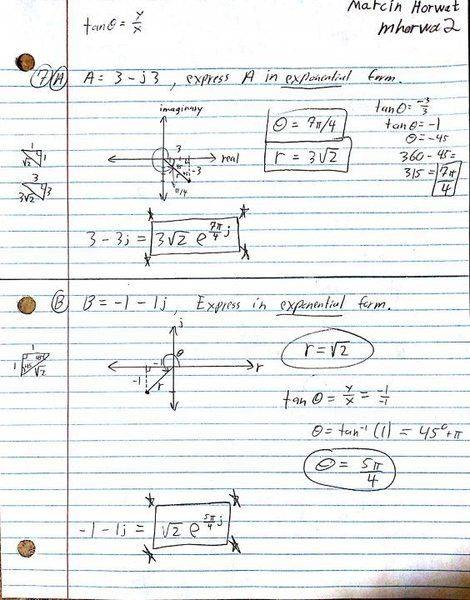 Marcin Horwat
mhorwa2
tanθ = y/x
7 A A = 3 - j3, express A in exponential form.
imaginary
real
3
-3
θ = 7π/4
r = 3√2
tanθ = -3/3
tanθ = -1
θ = -45
360 - 45 =
315 = 7π/4
1
1
√2
3
3
3√2
3 - 3j = 3√2 e^(7π/4 j)
B B = -1 - 1j, Express in exponential form.
j
θ
r
-1
-1
r
1
1
√2
r = √2
tan θ = y/x = -1/-1
θ = tan⁻¹ (1) = 45° + π
θ = 5π/4
-1 - 1j = √2 e^(5π/4 j)